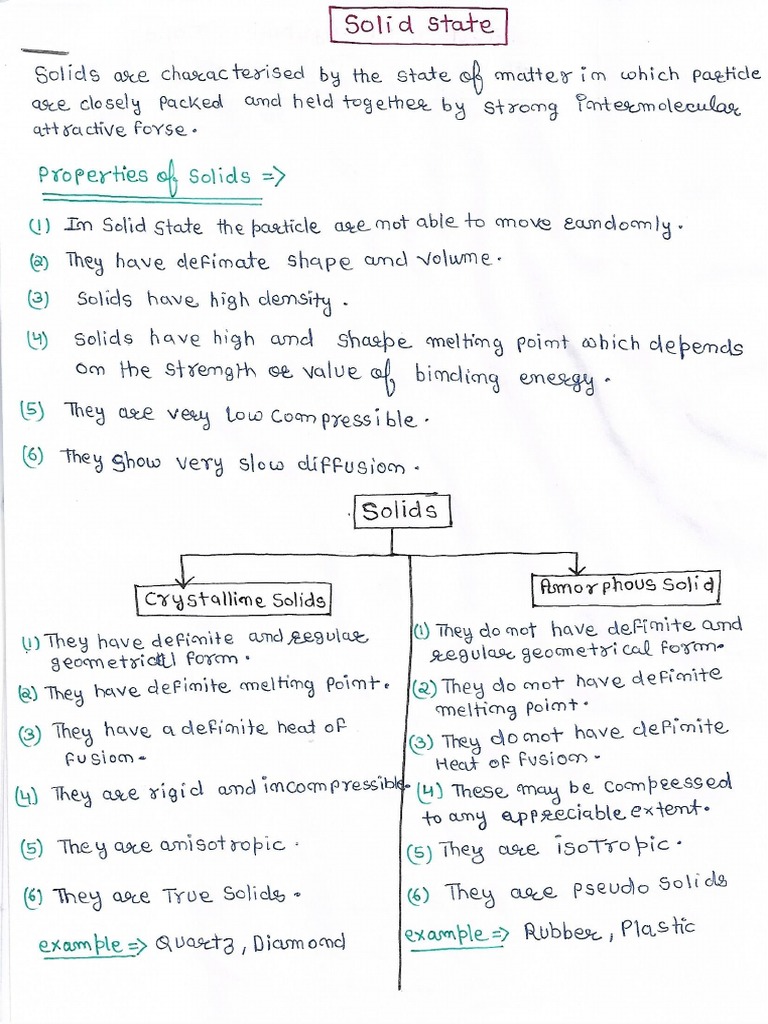 Solid State
Solids are characterised by the state of matter in which particle
are closely packed and held together by strong intermolecular
attractive forse.
Properties of Solids =>
(1) In Solid State the particle are not able to move randomly.
(2) They have defimate shape and volume.
(3) Solids have high density.
(4) Solids have high and sharpe melting point which depends
on the strength or value of binding energy.
(5) They are very low compressible.
(6) They show very slow diffusion.
Solids
Crystalline Solids
(1) They have definite and regular
geometrical form.
(2) They have definite melting point.
(3) They have a definite heat of
fusion.
(4) They are rigid and incompressible.
(5) They are anisotropic.
(6) They are True Solids.
example => Quartz, Diamond
Amorphous Solid
(1) They do not have definite and
regular geometrical form.
(2) They do not have definite
melting point.
(3) They do not have definite
Heat of fusion.
(4) These may be compressed
to any appreciable extent.
(5) They are isoTropic.
(6) They are pseudo solids
example => Rubber, Plastic